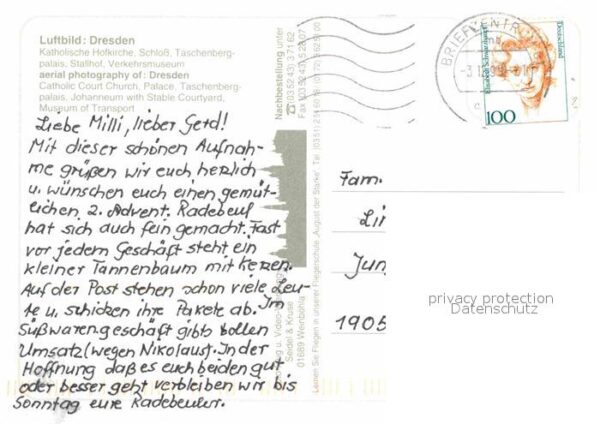 Luftbild: Dresden
Katholische Hofkirche, Schloß, Taschenberg-
palais, Stallhof, Verkehrsmuseum
aerial photography of: Dresden
Catholic Court Church, Palace, Taschenberg-
palais, Johanneum with Stable Courtyard,
Museum of Transport
Liebe Milli, lieber Gerd!
Mit dieser schönen Aufnah-
me grüßen wir euch herzlich
u. wünschen euch einen gemüt-
lichen 2. Advent. Radebeul
hat sich auch fein gemacht. Fast
vor jedem Geschäft steht ein
kleiner Tannenbaum mit Kerzen.
Auf der Post stehen schon viele Leu-
te u. schicken ihre Pakete ab. Im
Süßwarengeschäft gibts tollen
Umsatz (wegen Nikolaus). In der
Hoffnung daß es euch beiden gut
oder besser geht verbleiben wir bis
Sonntag eure Radebeuler.
Nachbestellung unter
(03 52 43) 3 71 62
Seidel & Kruse
01689 Weinböhla
Lernen Sie Fliegen in unserer Fliegerschule „August der Starke"
BRIEFZENTRUM
Deutschland
100
Fam.
Li
Jun
1905
privacy protection
Datenschutz